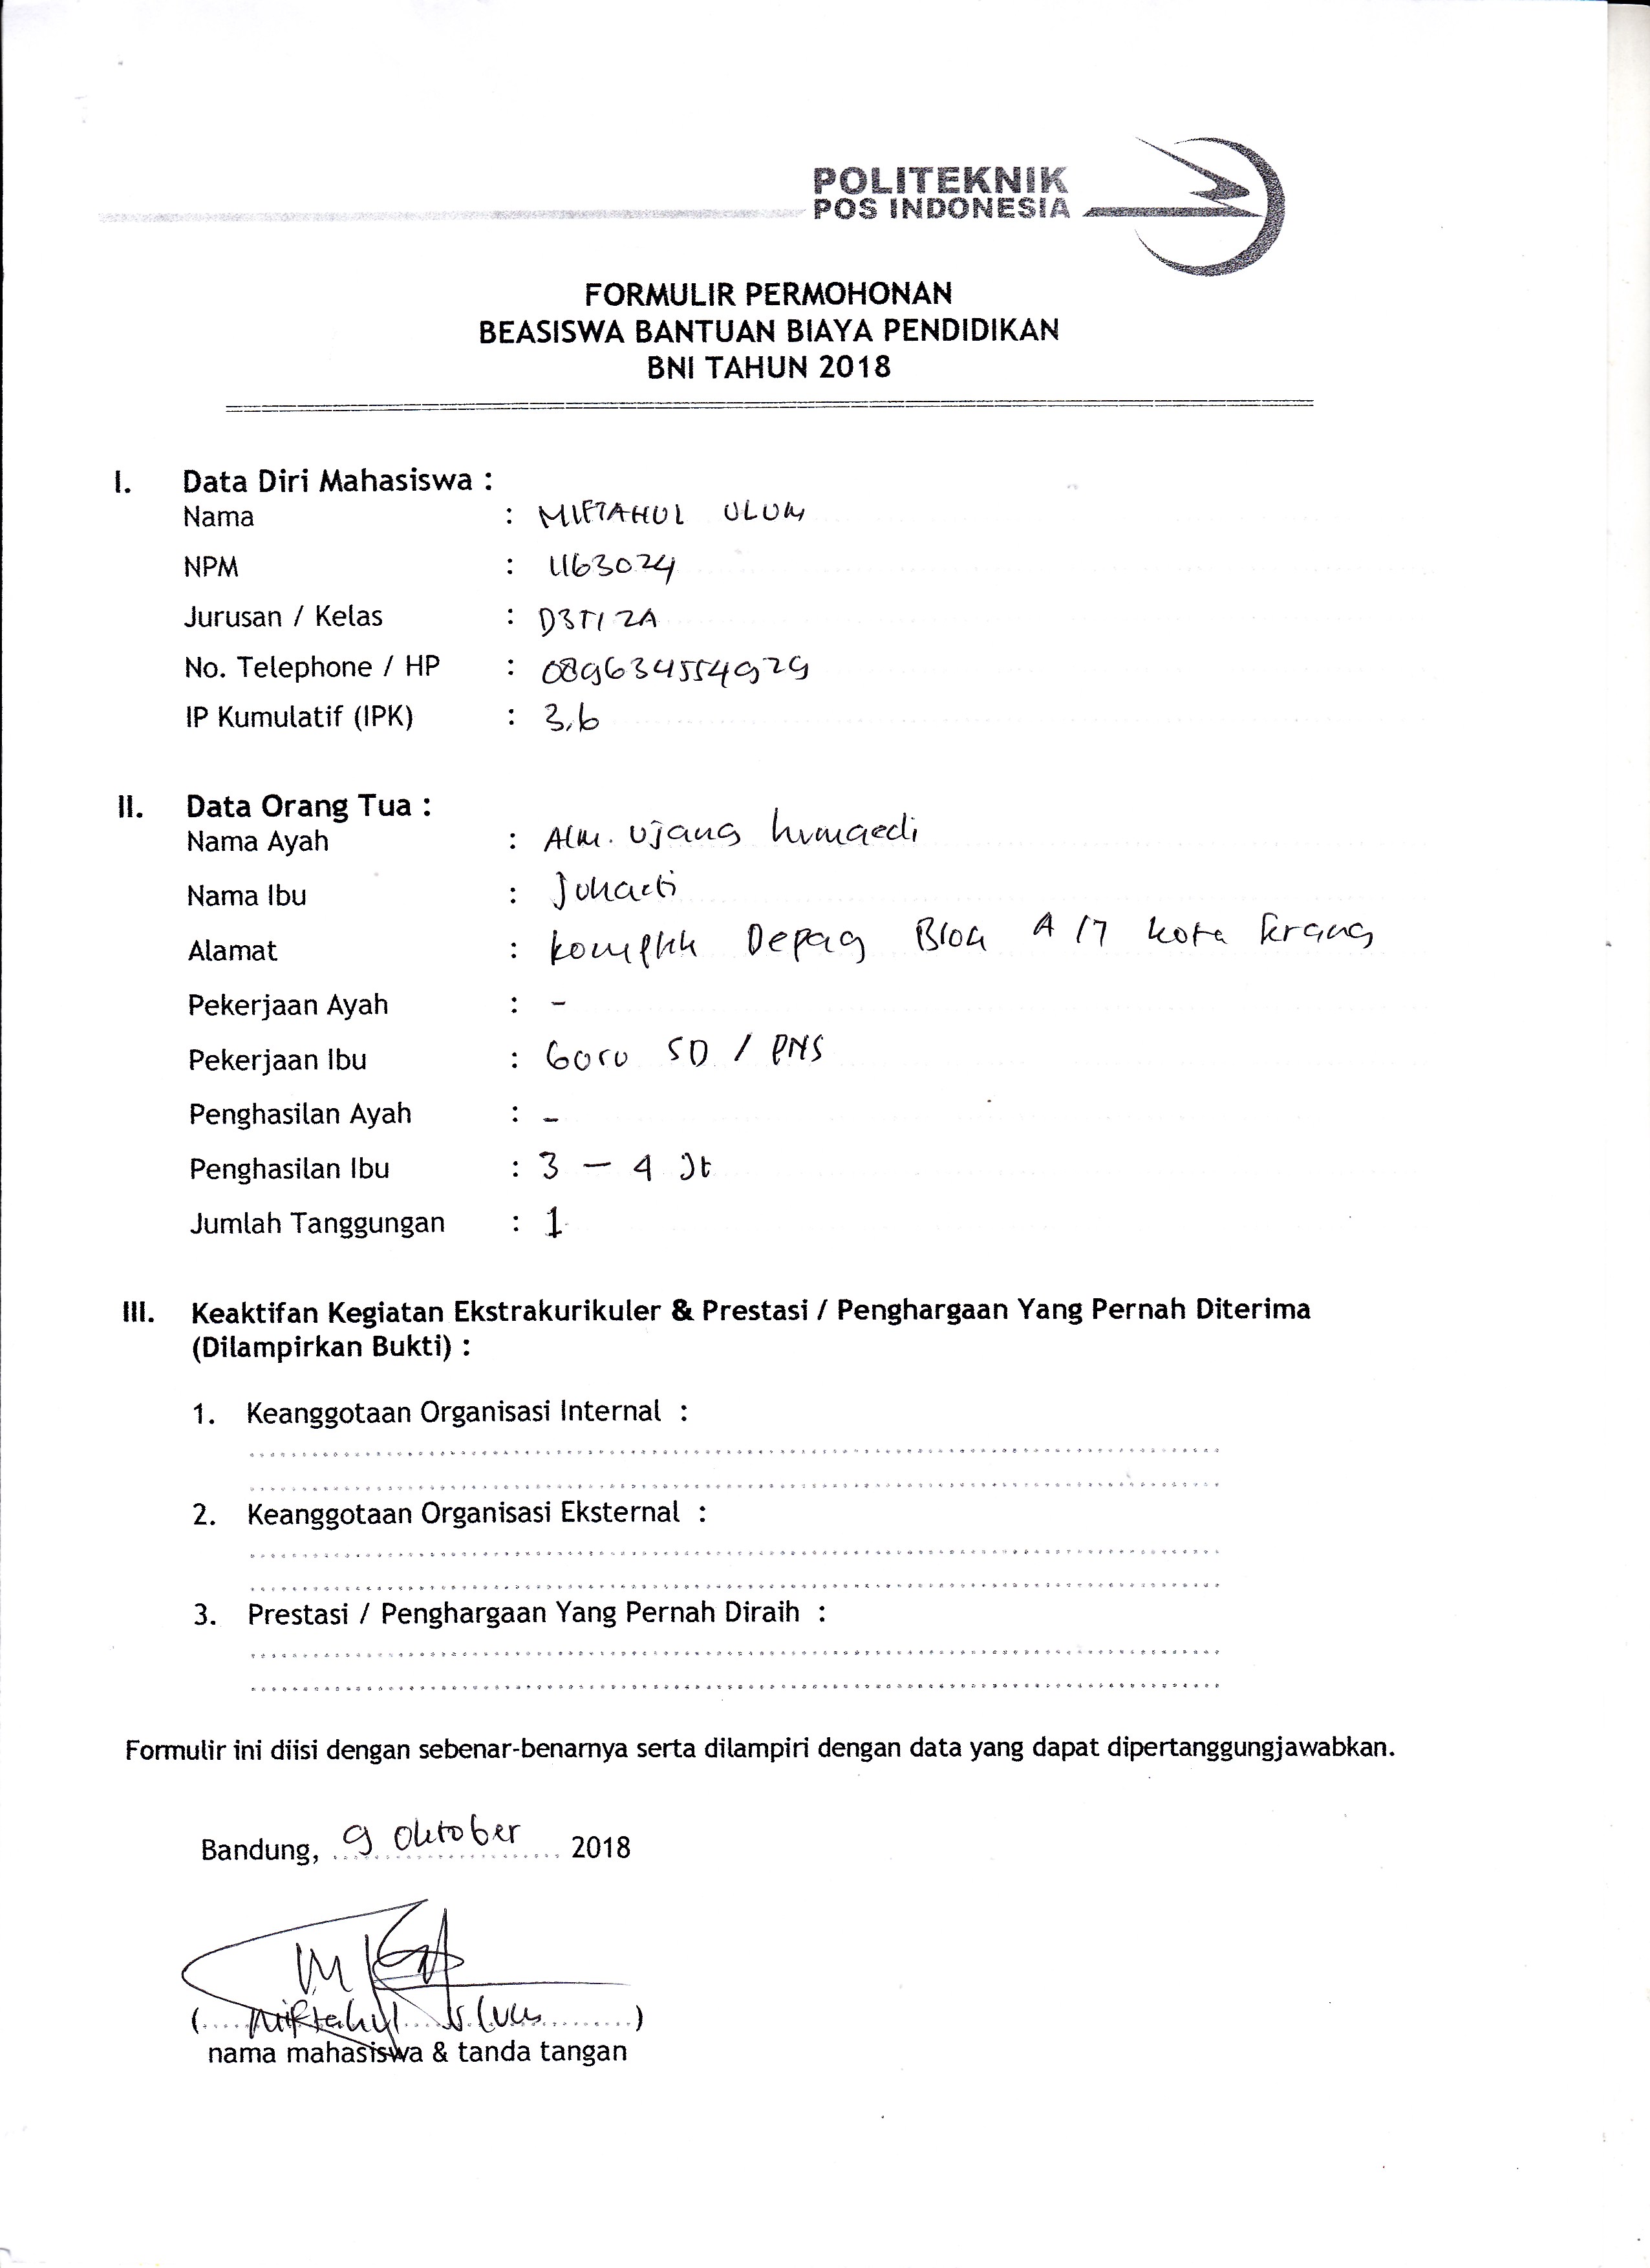 POLITEKNIK
POS INDONESIA
FORMULIR PERMOHONAN
BEASISWA BANTUAN BIAYA PENDIDIKAN
BNI TAHUN 2018
I. Data Diri Mahasiswa :
Nama : MIFTAHUL ULUM
NPM : 1163024
Jurusan / Kelas : D3TI 2A
No. Telephone / HP : 089634554929
IP Kumulatif (IPK) : 3,6
II. Data Orang Tua :
Nama Ayah : Alm. Ujang humaedi
Nama Ibu : Juhaeti
Alamat : Depag Blok A 17 kota Serang
Pekerjaan Ayah : -
Pekerjaan Ibu : Guru SD / PNS
Penghasilan Ayah : -
Penghasilan Ibu : 3 - 4 Jt
Jumlah Tanggungan : 1
III. Keaktifan Kegiatan Ekstrakurikuler & Prestasi / Penghargaan Yang Pernah Diterima
(Dilampirkan Bukti) :
1. Keanggotaan Organisasi Internal :
2. Keanggotaan Organisasi Eksternal :
3. Prestasi / Penghargaan Yang Pernah Diraih :
Formulir ini diisi dengan sebenar-benarnya serta dilampiri dengan data yang dapat dipertanggungjawabkan.
Bandung, 9 Oktober 2018
(Miftahul Ulum)
nama mahasiswa & tanda tangan